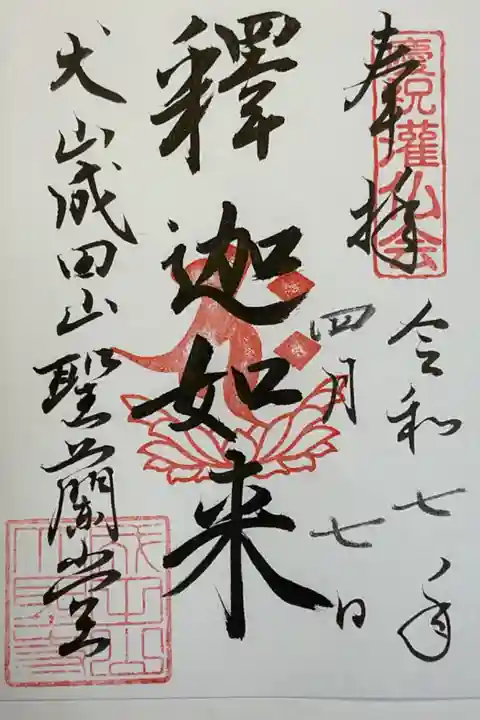 奉拝
慶祝灌仏会
令和七年
四月七日
釋迦如来
犬山成田山聖蘭堂